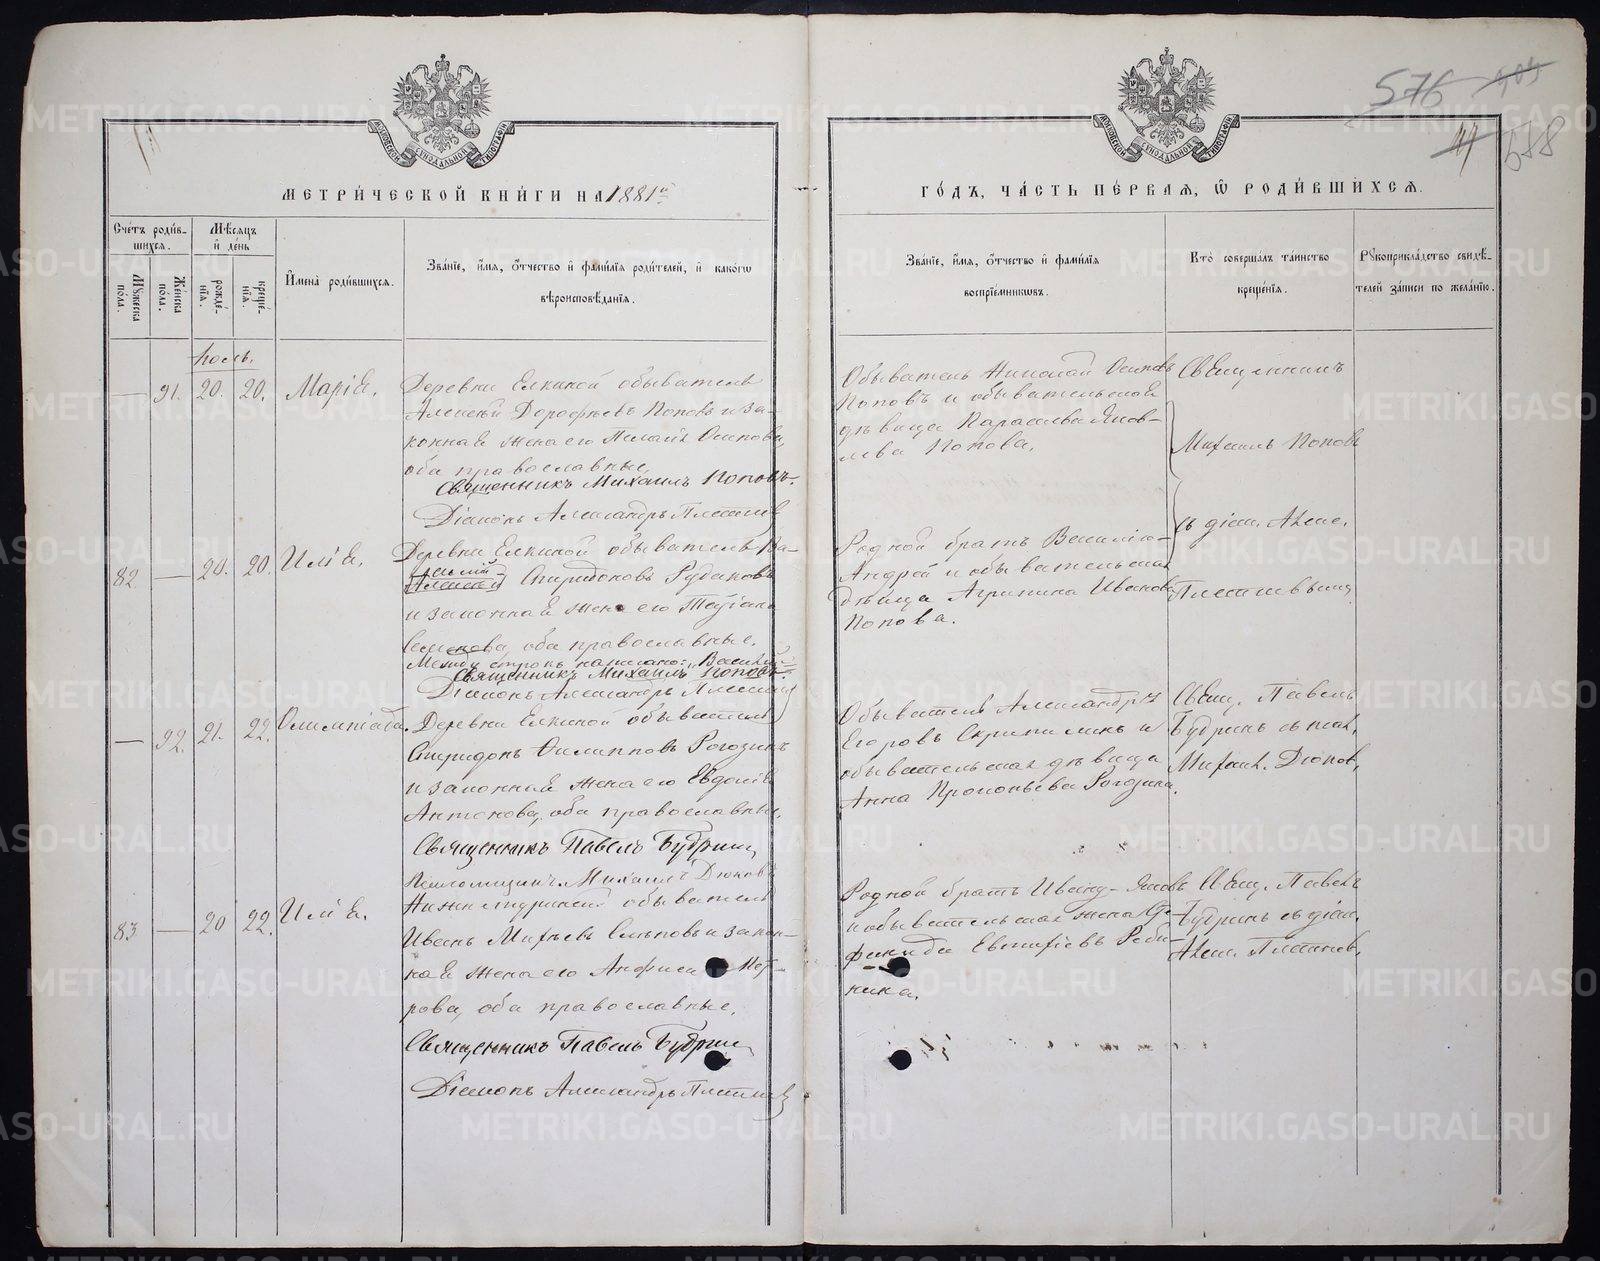 576
588
МЕТРИ́ЧЕСКОЙ КНИ́ГИ НА 1881й
ГО́ДЪ, ЧА́СТЬ ПЕ́РВАЯ, Ѽ РОДИ́ВШИХСЯ.
Сче́тъ роди́в-
шихся.
Мѣ́сяцъ
и҆ де́нь
Мꙋ́жеска по́ла.
Же́нска по́ла.
рожде́-
нїя.
креще́-
нїя.
И҆мена̀ роди́вшихся.
Зва́нїе, и҆́мя, ѻ҆́тчество и҆ фами́лїя роди́телей, и҆ како́гѡ
вѣроисповѣ́данїя.
Зва́нїе, и҆́мя, ѻ҆́тчество и҆ фами́лїя
воспрїе́мникѡвъ.
Кто̀ соверша́лъ та́инство
креще́нїя.
Рꙋкоприкла́дство свидѣ́-
телей за́писи по жела́нїю.
Іюль.
— 91. 20. 20. Марія.
Деревни Елкиной обыватель
Алексѣй Дорофѣевъ Поповъ и за-
конная жена его Пелагія Осипова,
оба православные.
Священникъ Михаилъ Поповъ.
Діаконъ Александръ Плетнев
Обыватель Николай Осиповъ
Поповъ и обывательская
дѣвица Параскева Яков-
лева Попова.
Священникъ
Михаилъ Поповъ
съ діак. Алекс.
Плетневымъ
82. — 20. 20. Илія.
Деревни Елкиной обыватель Ва-
силій
Алексѣй Спиридоновъ Рудаковъ
и законная жена его Татіана
Семенова, оба православные.
Между строкъ написано: „Василій"
Священникъ Михаилъ Поповъ.
Діаконъ Александръ Плетнев
Родной братъ Василію
Андрей и обывательская
дѣвица Агрипина Иванова
Попова.
— 92. 21. 22. Олимпіада.
Деревни Елкиной обыватель
Спиридонъ Филипповъ Рогозинъ
и законная жена его Евдокія
Антонова, оба православные.
Священникъ Павелъ Будринъ
Псаломщикъ Михаилъ Дюковъ
Обыватель Александръ
Егоровъ Скрипилинъ и
обывательская дѣвица
Анна Прокопьева Рогозина.
Свящ. Павелъ
Будринъ съ псал.
Михаил. Дюков.
83 — 20 22. Илія.
обыватель
Иванъ Михѣевъ Слѣповъ и закон-
ная жена его Анфиса Пет-
рова, оба православные.
Священникъ Павелъ Будрин
Діаконъ Александръ Плетнев
Родной братъ Ивану - Яковъ
и обывательская жена
Евтихіевъ Реби-
нина.
Свящ. Павелъ
Будринъ съ діак.
Алекс. Плетнев.
METRIKI.GASO-URAL.RU